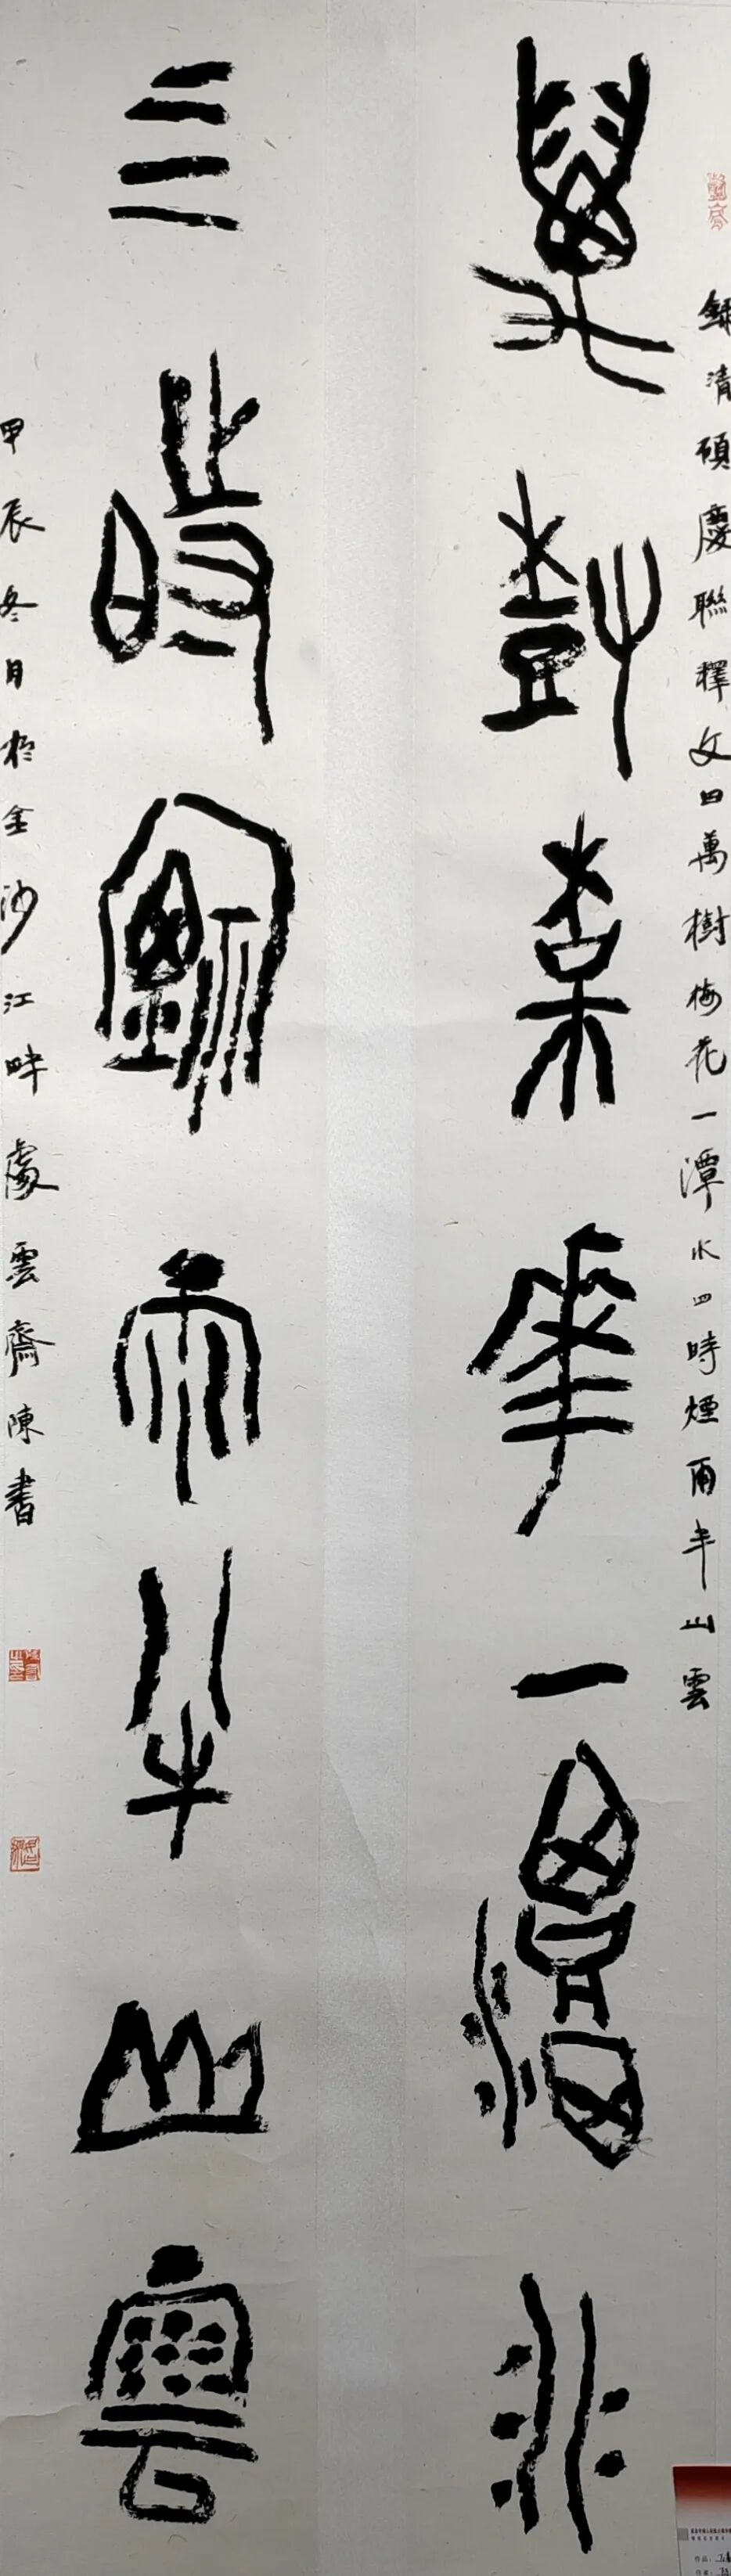 錄清碩慶聯釋文曰萬樹梅花一潭水四時煙雨半山雲
萬樹某華一潭水
三時煙雨半山雲
甲辰冬月於金沙江畔處雲齋陳書